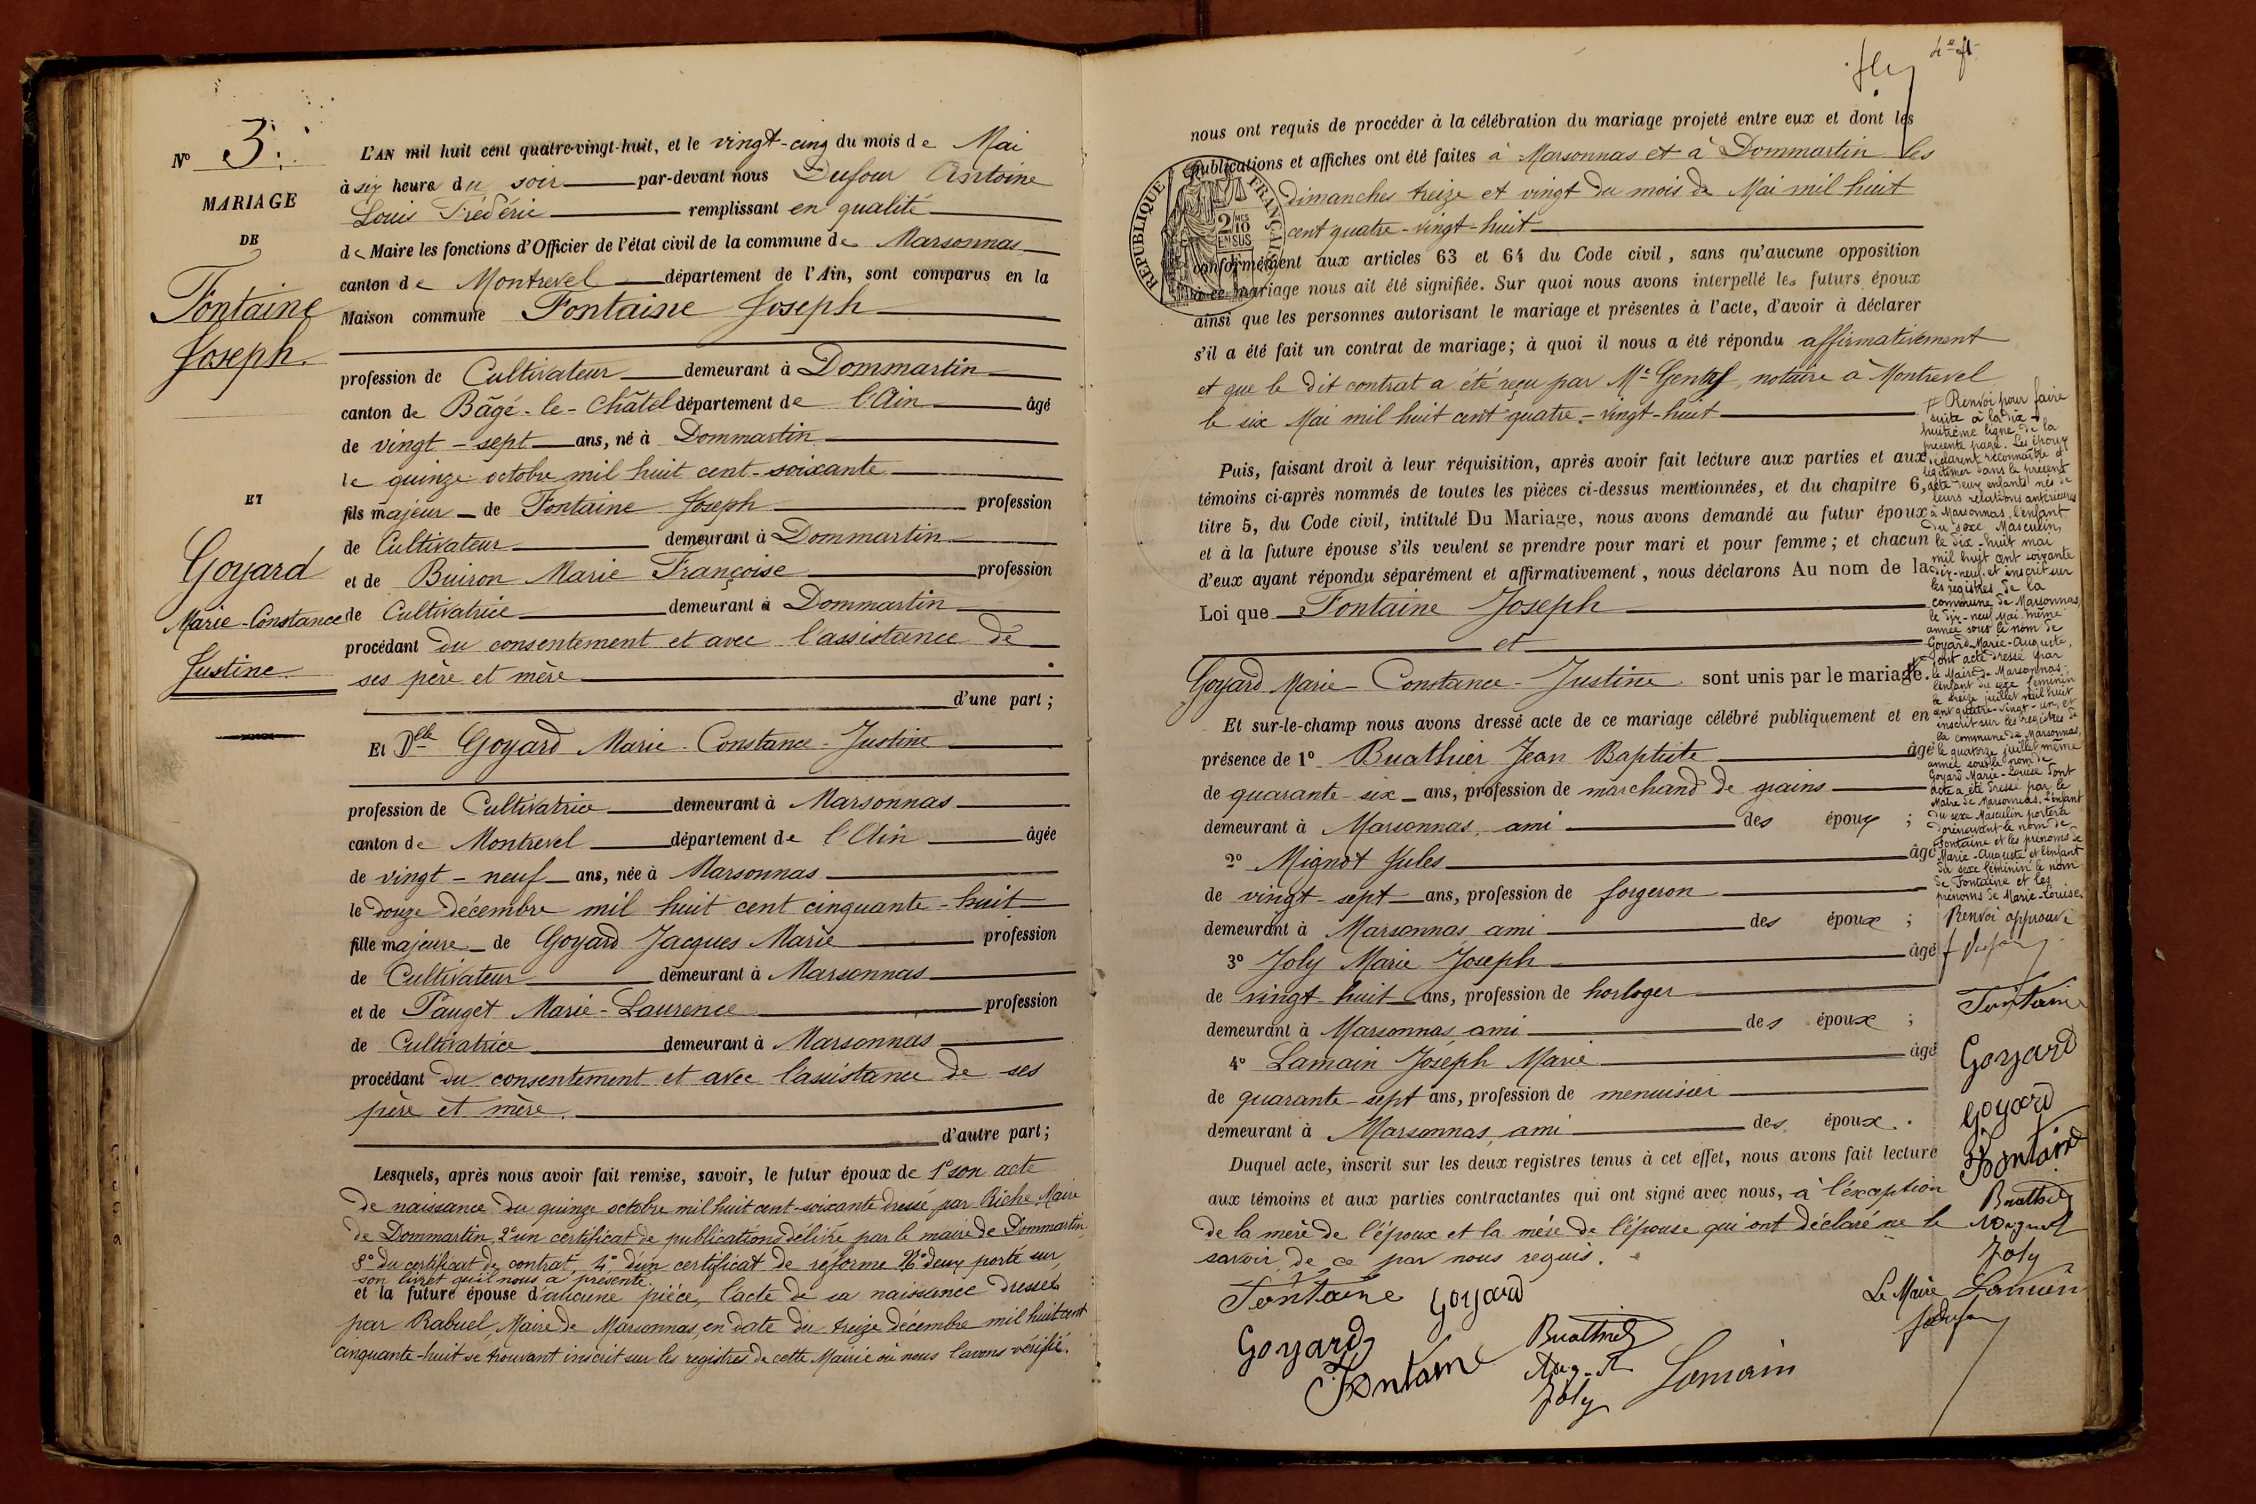 N° 3.
MARIAGE
DE
Fontaine
Joseph.
ET
Goyard
Marie-Constance
Justine.
L'AN mil huit cent quatre-vingt-huit, et le vingt-cinq du mois de Mai
à six heure du soir par-devant nous Dufour Antoine
Louis Frédéric remplissant en qualité
de Maire les fonctions d'Officier de l'état civil de la commune de Marsonnas
canton de Montrevel département de l'Ain, sont comparus en la
Maison commune Fontaine Joseph
profession de Cultivateur demeurant à Dommartin
canton de Bâgé-le-Châtel département de l'Ain âgé
de vingt-sept ans, né à Dommartin
le quinze octobre mil huit cent-soixante
fils majeur de Fontaine Joseph profession
de Cultivateur demeurant à Dommartin
et de Buiron Marie Françoise profession
de Cultivatrice demeurant à Dommartin
procédant du consentement et avec l'assistance de
ses père et mère
d'une part ;
Et Dlle Goyard Marie-Constance-Justine
profession de Cultivatrice demeurant à Marsonnas
canton de Montrevel département de l'Ain âgée
de vingt-neuf ans, née à Marsonnas
le douze décembre mil huit cent cinquante-huit
fille majeure de Goyard Jacques Marie profession
de Cultivateur demeurant à Marsonnas
et de Pauget Marie-Laurence profession
de Cultivatrice demeurant à Marsonnas
procédant du consentement et avec l'assistance de ses
père et mère.
d'autre part ;
Lesquels, après nous avoir fait remise, savoir, le futur époux de 1° son acte
de naissance du quinze octobre mil huit cent-soixante dressé par Riche, Maire
de Dommartin, 2° un certificat de publications délivré par le maire de Dommartin,
3° du certificat de contrat, 4° d'un certificat de réforme N° deux porté sur
son livret qu'il nous a présenté.
et la future épouse d'aucune pièce, l'acte de sa naissance dressé
par Rabuel, Maire de Marsonnas, en date du treize décembre mil huit cent
cinquante-huit se trouvant inscrit sur les registres de cette Mairie où nous l'avons vérifié.
nous ont requis de procéder à la célébration du mariage projeté entre eux et dont les
publications et affiches ont été faites à Marsonnas et à Dommartin les
dimanches treize et vingt du mois de Mai mil huit
cent quatre-vingt-huit
REPUBLIQUE FRANÇAISE
2/10 MES
EN SUS
conformément aux articles 63 et 64 du Code civil, sans qu'aucune opposition
à ce mariage nous ait été signifiée. Sur quoi nous avons interpellé les futurs époux
ainsi que les personnes autorisant le mariage et présentes à l'acte, d'avoir à déclarer
s'il a été fait un contrat de mariage ; à quoi il nous a été répondu affirmativement
et que le dit contrat a été reçu par Me notaire à Montrevel
le six Mai mil huit cent quatre-vingt-huit
Puis, faisant droit à leur réquisition, après avoir fait lecture aux parties et aux
témoins ci-après nommés de toutes les pièces ci-dessus mentionnées, et du chapitre 6,
titre 5, du Code civil, intitulé Du Mariage, nous avons demandé au futur époux
et à la future épouse s'ils veulent se prendre pour mari et pour femme ; et chacun
d'eux ayant répondu séparément et affirmativement, nous déclarons Au nom de la
Loi que Fontaine Joseph
et
Goyard Marie-Constance-Justine sont unis par le mariage.
Et sur-le-champ nous avons dressé acte de ce mariage célébré publiquement et en
présence de 1° Buathier Jean Baptiste âgé
de quarante-six ans, profession de marchand de grains
demeurant à Marsonnas, ami des époux ;
2° Mignot Jules âgé
de vingt-sept ans, profession de forgeron
demeurant à Marsonnas ami des époux ;
3° Joly Marie Joseph âgé
de vingt-huit ans, profession de horloger
demeurant à Marsonnas ami des époux ;
4° Lamain Joseph Marie âgé
de quarante-sept ans, profession de menuisier
demeurant à Marsonnas, ami des époux.
Duquel acte, inscrit sur les deux registres tenus à cet effet, nous avons fait lecture
aux témoins et aux parties contractantes qui ont signé avec nous, à l'exception
de la mère de l'époux et la mère de l'épouse qui ont déclaré ne le
savoir de ce par nous requis.
Fontaine Goyard
Goyard Buathier
Fontaine
Joly Lamain
Renvoi pour faire
suite à la dix-
huitième ligne de la
présente page. Les époux
déclarent reconnaître et
légitimer dans le présent
acte deux enfants nés de
leurs relations antérieures
à Marsonnas, l'enfant
du sexe Masculin,
le dix-huit mai
mil huit cent soixante
dix-neuf et inscrit sur
les registres de la
commune de Marsonnas,
le dix-neuf Mai même
année sous le nom de
Goyard Marie-Auguste,
dont acte dressé par
le Maire de Marsonnas.
l'enfant du sexe féminin
le treize juillet mil huit
cent quatre-vingt-un, et
inscrit sur les registres de
la commune de Marsonnas,
le quatorze juillet même
année sous le nom de
Goyard Marie-Louise dont
acte a été dressé par le
Maire de Marsonnas. L'enfant
du sexe Masculin portera
dorénavant le nom de
Fontaine et les prénoms de
Marie-Auguste et l'enfant
du sexe féminin le nom
de Fontaine et les
prénoms de Marie-Louise.
Renvoi approuvé
Fontaine
Goyard
Goyard
Fontaine
Buathier
Mignot
Joly
Le Maire Lamain